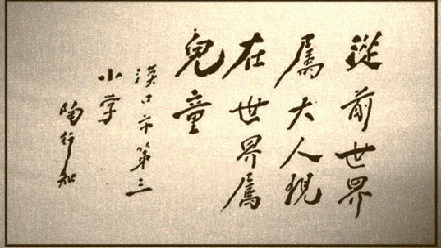 從前世界
屬大人現
在世界屬
兒童
漢口市第三
小学
陶行知